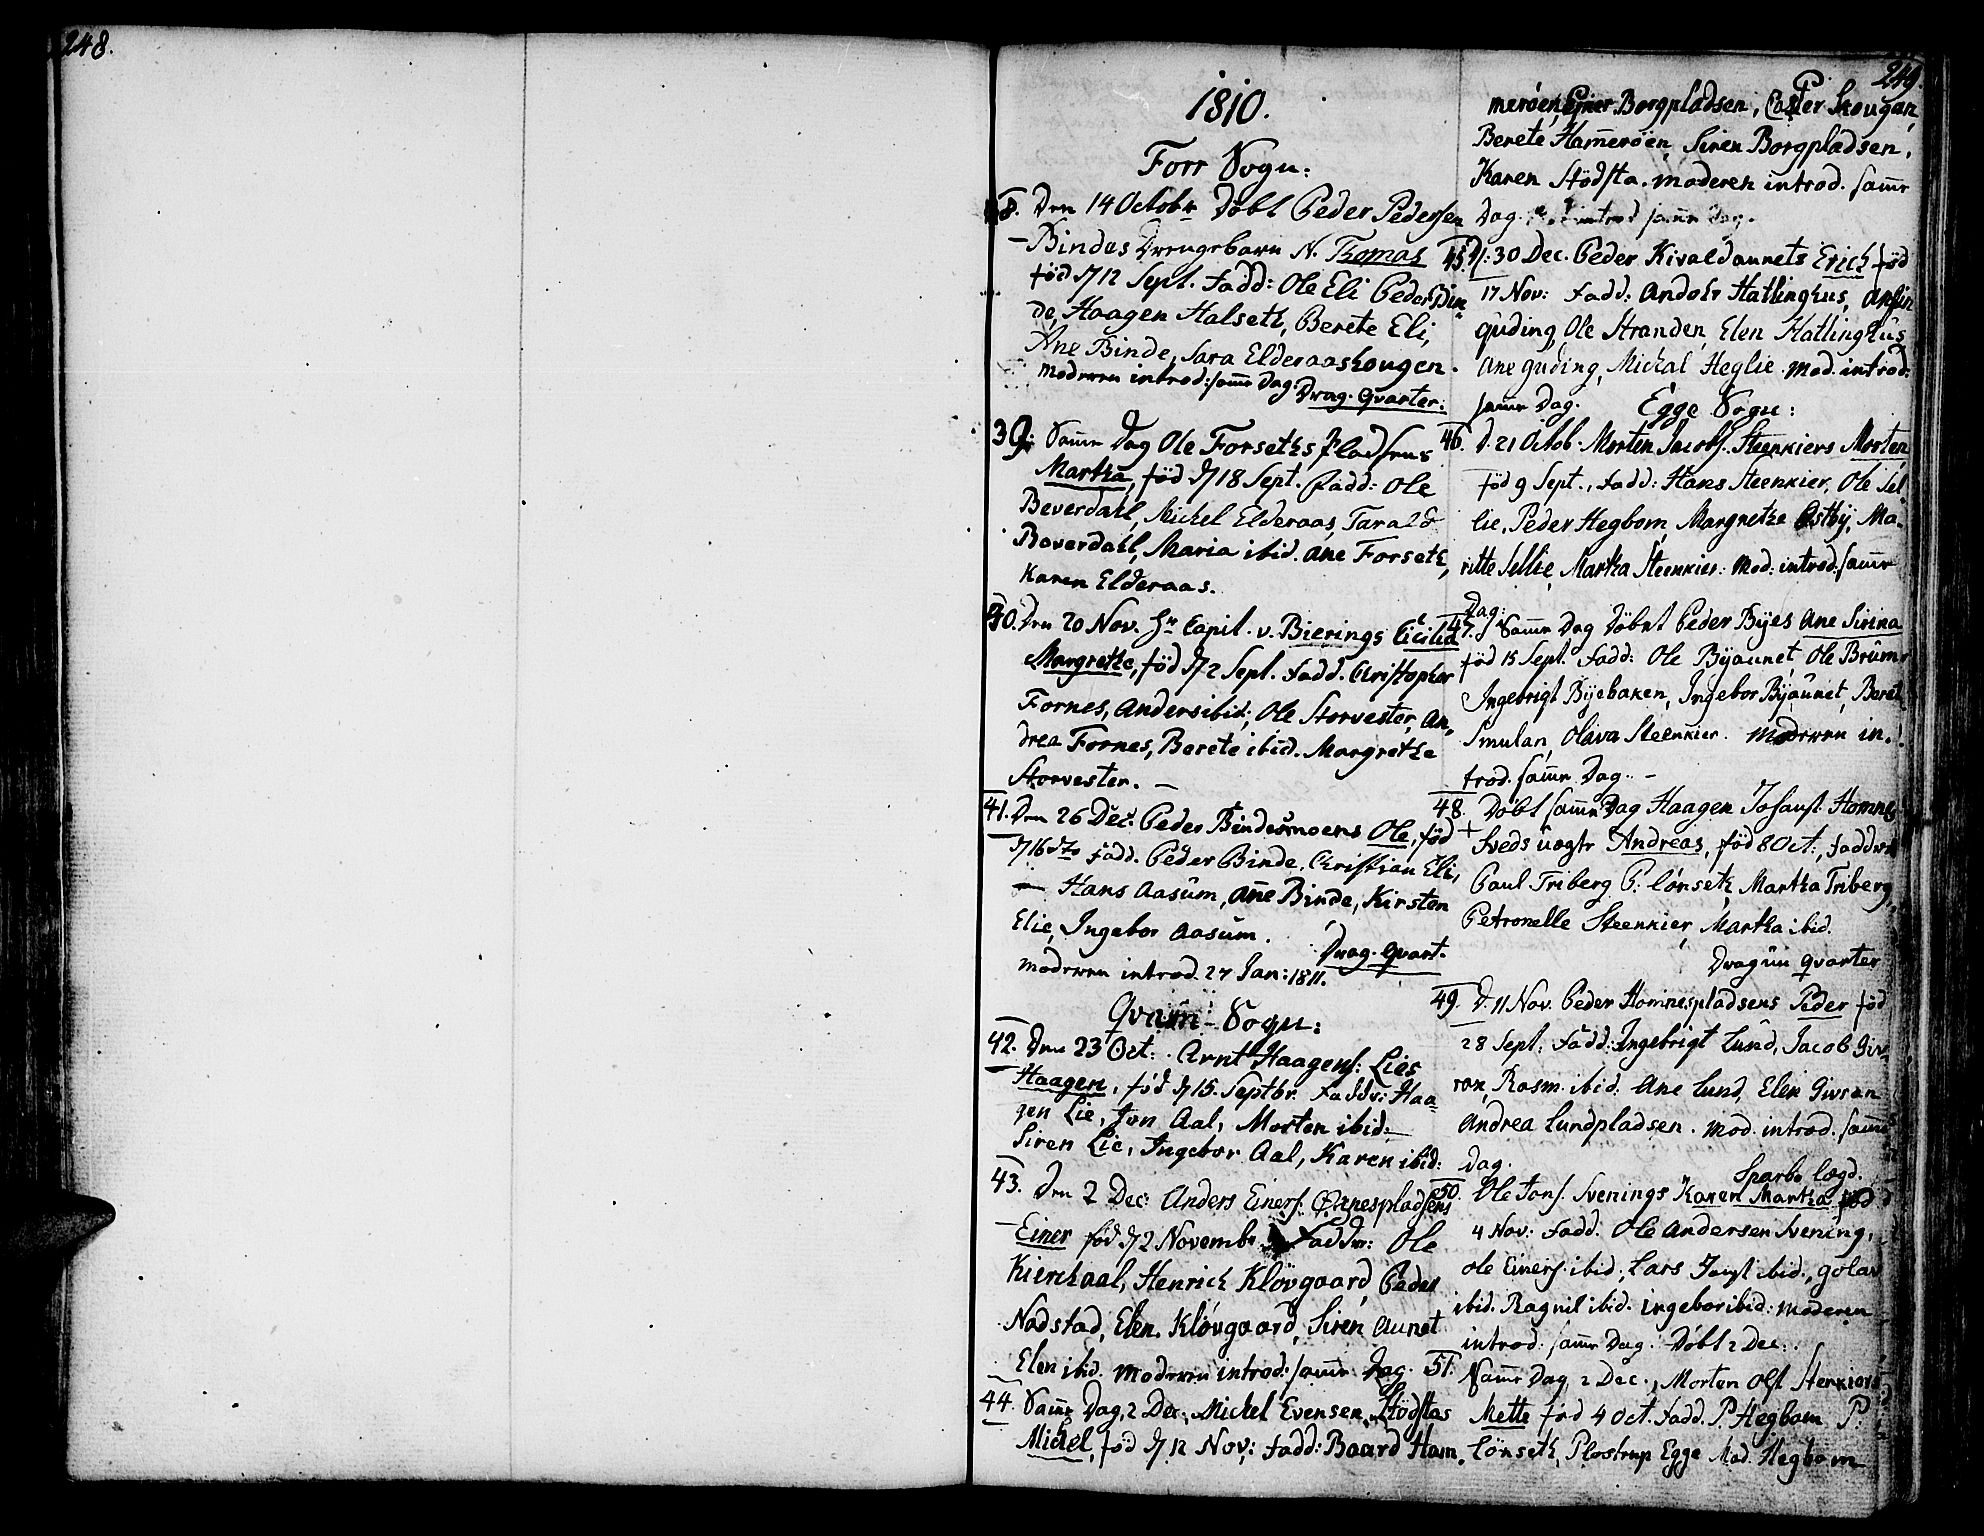 248.
249.
1810.
Forr Sogn:
38. Den 14 Octobr Döbt Peder Pedersen
Bindes Drengebarn N. Thomas
föd d 12 Sept. Fadd: Ole Eli Peder Bin-
de, Haagen Halseth, Berete Eli,
Ane Binde, Sara Elderaashougen.
Moderen introd: samme Dag. Drag. Qvarter:
39. Samme Dag Ole Forseths Pladsens
Martha, föd d 18 Sept. Fadd: Ole
Beverdahl, Michel Elderaas, Tarald
Baverdahl, Maria ibid. Ane Forseth,
Karen Elderaas.
40. Den 20 Nov. Hr Capit. v. Bierings Cicilia
Margrethe, föd d 2 Sept. Fadd. Christopher
Fornes, Anders ibid; Ole Storvester, An-
drea Fornes, Berete ibid. Margrethe
Storvester. –
41. Den 26 Dec: Peder Bindesmoens Ole, föd
d 16 dto Fadd. Peder Binde, Christian Eli,
Hans Aasum, Ane Binde, Kirsten
Elie, Ingebor Aasum.
Drag. Qvart.
Moderen introd. 27 Jan: 1811.
Qvam-Sogn:
42. Den 23 Oct: Arnt Haagens. Lies
Haagen, föd d 15. Septbr. Faddr: Haa-
gen Lie, Jon Aal, Morten ibid:
Siren Lie, Ingebor Aal, Karen ibid:
43. Den 2 Dec: Anders Einers. Ørnespladsens
Einer föd d 2 Novemb Faddr: Ole
Kirchaal, Henrich Klövgaard, Peder
Nadstad, Elen Klövgaard, Siren Aunet
Elen ibid. Moderen introd: samme Dag.
44. Samme Dag, 2 Dec., Michel Evensen Stödstas
Michel, föd d 12 Nov: Fadd: Baard Ham-
meröen, Einer Borgpladsen, Peder Hougan,
Berete Hammeröen, Siren Borgpladsen,
Karen Stödsta. Moderen introd. samme
Dag. introd samme Dag.
45. D: 30 Dec. Peder Kivaldaunets Erich föd
17 Nov: Fadd: Andohr Hatlinghus, Arfin
Guding, Ole Stranden, Elen Hatlinghus
Ane Guding, Michal Heglie. Mod. introd:
samme Dag. Egge Sogn:
46. d. 21 Octob. Morten Jacobs. Steenkiers Morten
föd 9 Sept., Fadd: Hans Steenkier, Ole Sel-
lie, Peder Hegbom, Margrethe Østby, Ma-
ritte Sellie, Martha Steenkier: Mod: introd: samme
Dag:
47. Samme Dag Döbt Peder Byes Ane Sirina
föd 15 Sept. Fadd: Ole Byaunet, Ole Brüm
Ingebrigt Byebaken, Ingebor Byaunet, Beret
Smulan, Olava Steenkier. Moderen in-
trod. samme Dag. –
48. Döbt samme Dag Haagen Johans. Homne
Sveds uægte Andreas, föd 8 Oct:, Faddere
Paul Triberg P: Lönseth, Martha Triberg,
Petronelle Steenkier, Martha ibid.
Dragun Qvarter
49. D. 11 Nov. Peder Homnespladsens Peder föd
28 Sept: Fadd: Ingebrigt Lund, Jacob Giv-
ran, Rasm. ibid: Ane Lund, Elen Givran
Andrea Lundpladsen. Mod. introd. samme
Dag.
Sparbo lægd.
50. Ole Jons. Svenings Karen Martha föd
4 Nov: Fadd. Ole Andersen Svening,
Ole Einers. ibid:, Lars Jens. ibid:, Golav
ibid. Ragnil ibid. Ingebor ibid: Moderen
introd: samme Dag. Döbt 2 Dec:.
51. Samme Dag 2 Dec:, Morten Ols. Stenkiers
Mette föd 4 Oct. Fadd. P. Hegbom P:
Lönseth, Plostrup Egge Mad. Hegbom